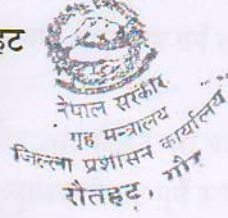 हट
नेपाल सरकार
गृह मन्त्रालय
जिल्ला प्रशासन कार्यालय
रौतहट, गौर